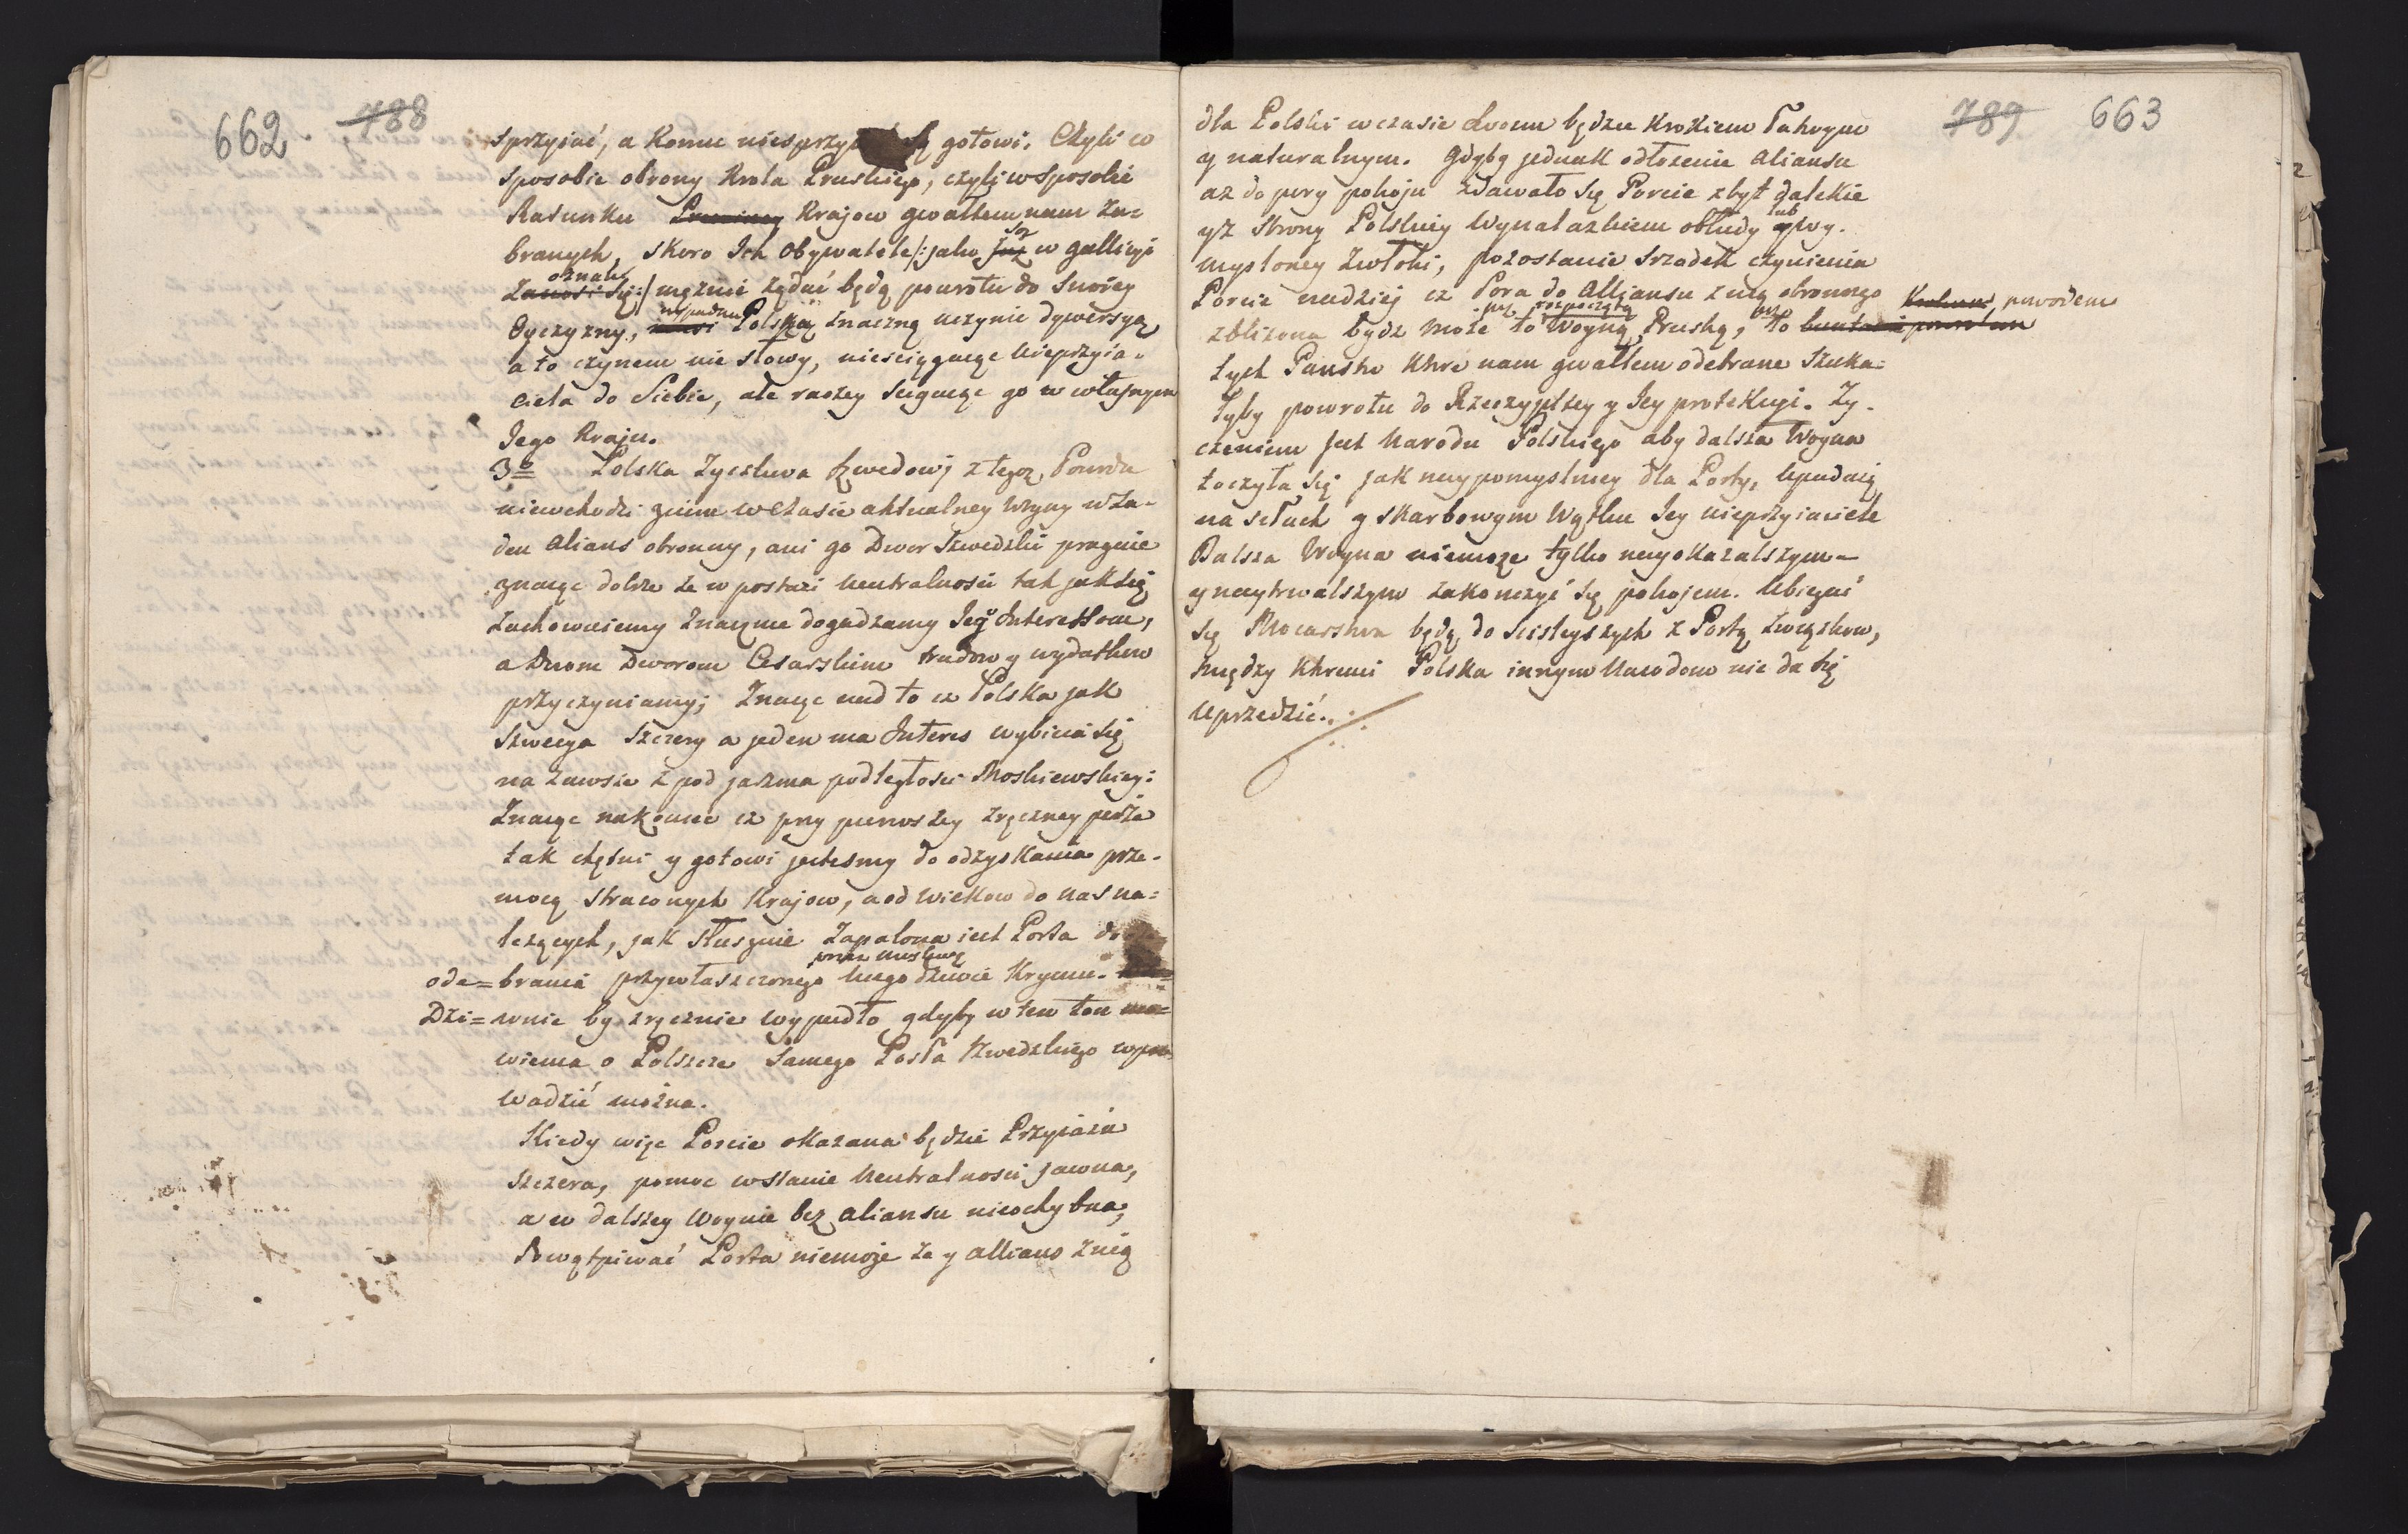 662. 788
sprzyiać, a komu niesprzyi są gotowi. Czyli w
sposobie obrony Krola Pruskiego, czylj w sposobie
Ratunku Krajow gwałtem nam za=
branych, skoro Ich Obywatele /: jako są już w Gallicyi
oznaki
Zanosi się :/ mężnie żądać będą powrotu do swoiey
Oyczyzny, wypadnie Polskę znaczną uczynic dywersyą
a to czynem nie słowy, nieściągaiąc Nieprzyia-
ciela do Siebie, ale raczey ścigaiąc go w własnym
Jego Kraju.
3o Polska życzliwa Szwedowj z tegoż Powodu
niewchodzi z nim w czasie aktualney Woyny w ża-
den alians obronny, ani go Dwor Szwedzki pragnie
znaiąc dobrze że w postaci Neutralności tak jak się
zachowuiemy znacznie dogadzamy Jey Interessom,
a Dwom Dworom Cesarskim trudow y wydatkow
przyczyniamy; Znaiąc nad to iż Polska jak
Szwecya szczery a jeden ma Interes wybicia się
na zawsze z pod jarzma podległości Moskiewskiey:
Znaiąc nakoniec iż przy pierwszey zręczney porze
tak chętni y gotowi jesteśmy do odzyskania prze-
mocą straconych Krajow, a od wiekow do nas na=
leżących, jak słusznie zapalona iest Porta do
przez Moskwę
ode=brania przywłaszczonego niegodziwie Krymu.
Dzi=wnie by zręcznie wypadło gdyby w ten ton mo=
wienia o Polszcze samego Posła Szwedzkiego wpro-
wadzić można.
Kiedy więc Porcie okazana będzie Przyiaźń
szczera, pomoc w stanie Neutralności jawna,
a w dalszey Woynie bez aliansu nieochybna;
Powątpiwać Porta niemoże że y allians z nią
789 663
dla Polski w czasie swoim będzie krokiem łatwym
y naturalnym. Gdyby jednak odłożenie aliansu
aż do pory pokoju zdawało się Porcie zbyt dalekie
y z strony Polskiey Wynalazkiem obłudy lub wy-
mysloney zwłoki, pozostanie srzodek czynienia
Porcie nadziej iż Pora do Alljansu z nią obronnego
zbliżona bydz może to przez rozpoczętą Woyną Pruską, to przez powodem
tych Państw ktore nam gwałtem odebrane szuka=
łyby powrotu do Rzeczyplitey y Jey protekcyi. Ży-
czeniem jest Narodu Polskiego aby dalsza Woyna
toczyła się jak naypomyslniey dla Porty, Upadaią
na siłach y skarbowym Wątku Jey nieprzyiaciele
Dalsza Woyna niemoże tylko nayokazalszym
y naytrwalszym zakonczyć się pokojem. Ubiegać
się Mocarstwa będą do scisleyszych z Portą związkow,
między ktoremi Polska innym Narodom nie da się
uprzedzić.